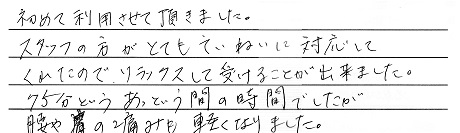 初めて利用させて頂きました。
スタッフの方がとてもていねいに対応して
くれたのでリラックスして受けることが出来ました。
75分というあっという間の時間でしたが
腰や肩の痛みも軽くなりました。